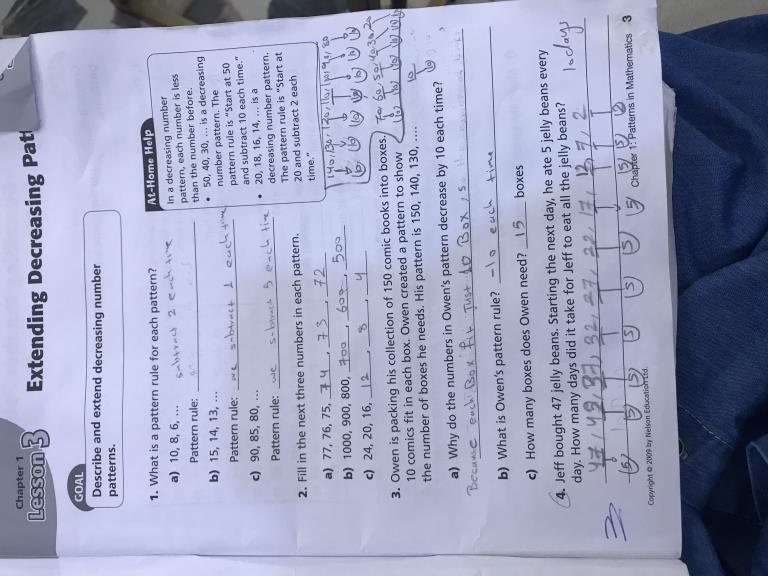 Chapter 1
Lesson 3
Extending Decreasing Pat
GOAL
Describe and extend decreasing number
patterns.
At-Home Help
In a decreasing number
pattern, each number is less
than the number before.
• 50, 40, 30, ... is a decreasing
number pattern. The
pattern rule is “Start at 50
and subtract 10 each time.”
• 20, 18, 16, 14, ... is a
decreasing number pattern.
The pattern rule is “Start at
20 and subtract 2 each
time.”
1. What is a pattern rule for each pattern?
a) 10, 8, 6, ... subtract 2 each time
Pattern rule:
b) 15, 14, 13, ...
Pattern rule: we subtract 1 each time
c) 90, 85, 80, ...
Pattern rule: we subtract 5 each time
2. Fill in the next three numbers in each pattern.
a) 77, 76, 75, 74, 73, 72
b) 1000, 900, 800, 700, 600, 500
c) 24, 20, 16, 12, 8, 4
3. Owen is packing his collection of 150 comic books into boxes.
10 comics fit in each box. Owen created a pattern to show
the number of boxes he needs. His pattern is 150, 140, 130, ....
a) Why do the numbers in Owen’s pattern decrease by 10 each time?
Because each Box fit Just 10 Box
b) What is Owen’s pattern rule? -10 each time
c) How many boxes does Owen need? 15 boxes
4. Jeff bought 47 jelly beans. Starting the next day, he ate 5 jelly beans every
day. How many days did it take for Jeff to eat all the jelly beans? 10 days
47, 42, 37, 32, 27, 22, 17, 12, 7, 2
(5) (5) (5) (5) (5) (5) (5) (5)
Copyright © 2009 by Nelson Education Ltd.
Chapter 1: Patterns in Mathematics 3